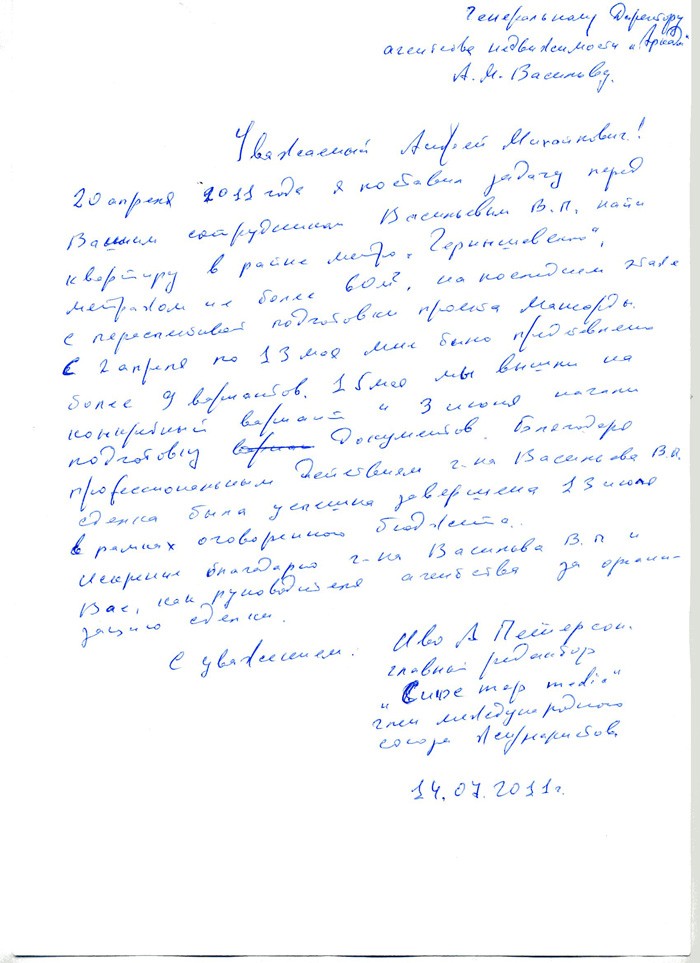 Генеральному Директору
агентства недвижимости "
А. М. Васильеву.
Уважаемый Андрей Михайлович!
20 апреля 2011 года я поставил задачу перед
Вашим сотрудником Васильевым В.П. найти
квартиру в районе метро „Чернышевская",
метражом не более 60 м², на последнем этаже
с перспективой подготовки проекта Мансарды.
С 2 апреля по 13 мая мне было представлено
более 9 вариантов. 15 мая мы вышли на
конкретный вариант и 3 июня начали
подготовку документов. Благодаря
профессиональным действиям г-на Васильева В.П.
сделка была успешна завершена 13 июля
в рамках оговоренного бюджета.
Искренне благодарю г-на Васильева В.П и
Вас, как руководителя агентства за органи-
зацию сделки.
С уважением. Иво А Петерсон.
главный редактор
media"
член международного
союза Журналистов
14.07.2011г.